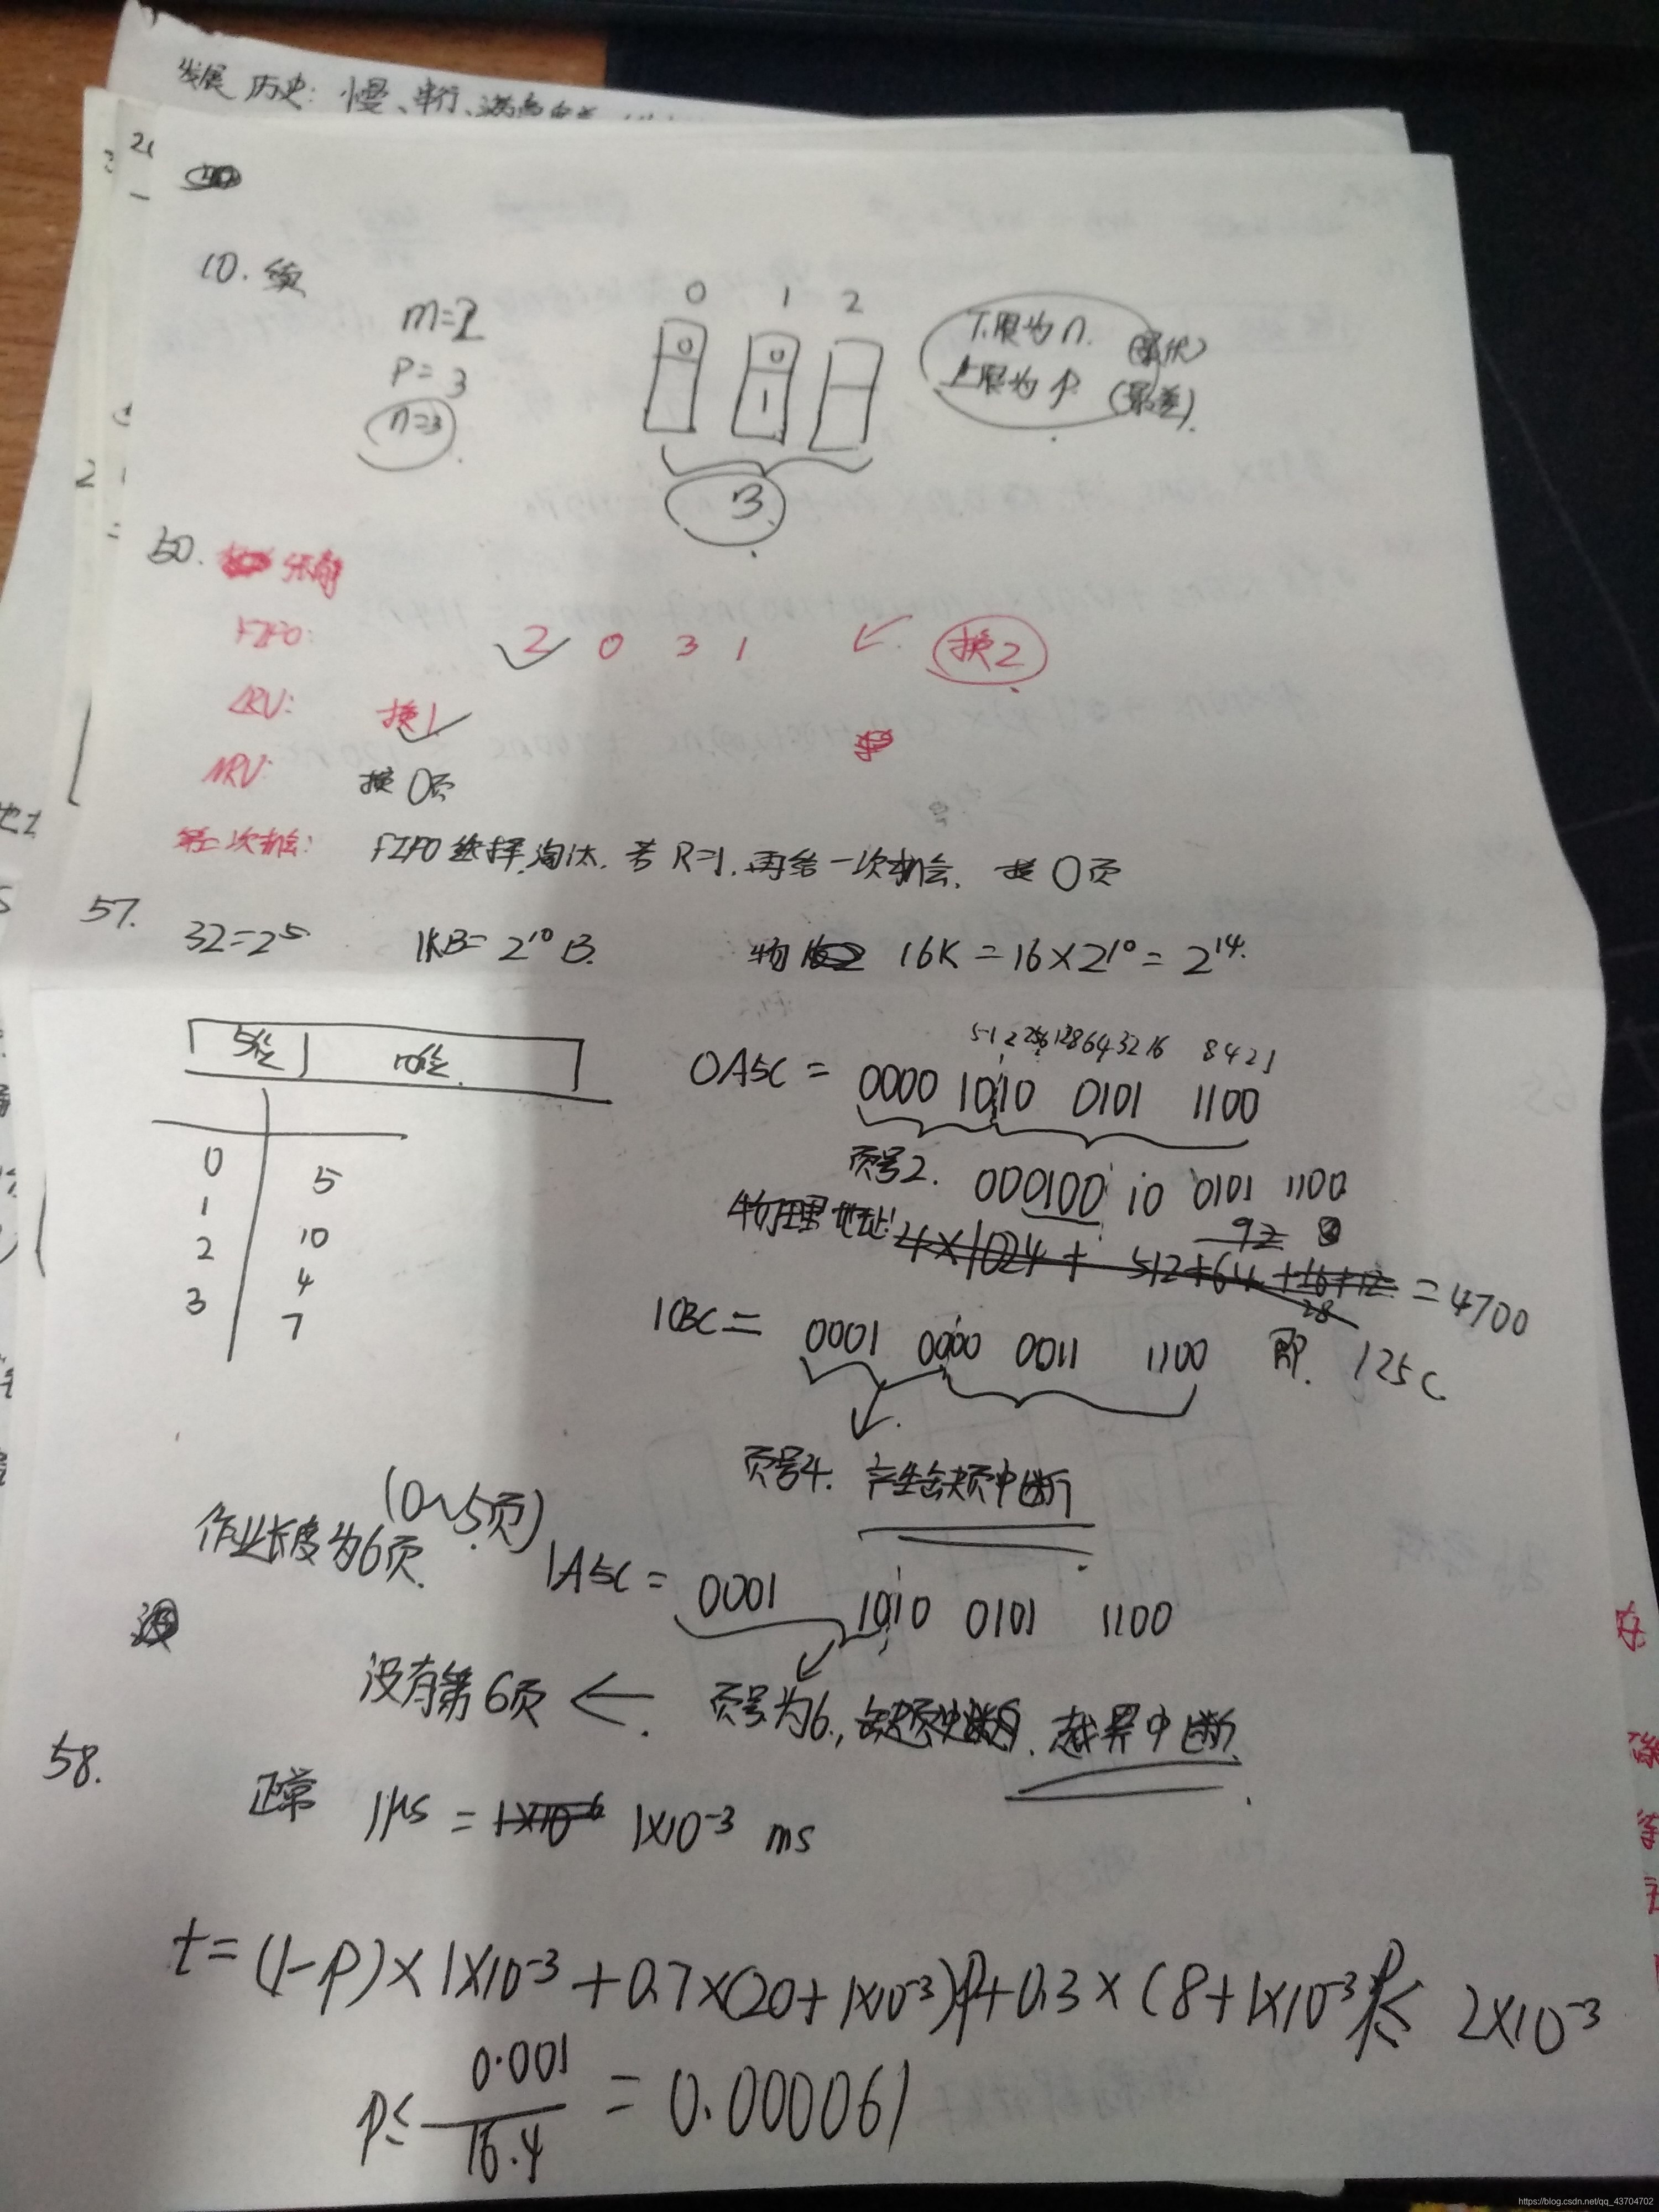 发展 历史: 慢、串行、
10. 续
m=2
P=3
n=3
0 1 2
0 0
1
3
下限为n. (最优)
上限为P (最差).
50.
FIFO: 2 0 3 1 换2
LRU: 换1
NRU: 换0页
第二次机会: FIFO 选择淘汰, 若R=1, 再给一次机会, 换0页
57. 32=2⁵ 1KB=2¹⁰B. 物 16K=16×2¹⁰=2¹⁴.
5位 10位
512 256 128 64 32 16 8 4 2 1
0A5C = 0000 1010 0101 1100
0 5
1 10
2 4
3 7
页号2. 000100 10 0101 1100
92
物理地址: 4×1024 + 512+64+16+12 = 4700
28
即. 125C
10BC= 0001 0000 0011 1100
页号4. 产生缺页中断
作业长度为6页. (0~5页)
1A5C = 0001 1010 0101 1100
没有第6页 ← 页号为6, 缺页中断, 越界中断.
58. 正常 1μs = 1×10⁻⁶ 1×10⁻³ ms
t=(1-P)×1×10⁻³+0.7×(20+1×10⁻³)P+0.3×(8+1×10⁻³)P≤ 2×10⁻³
P≤ 0.001/16.4 = 0.000061
https://blog.csdn.net/qq_43704702